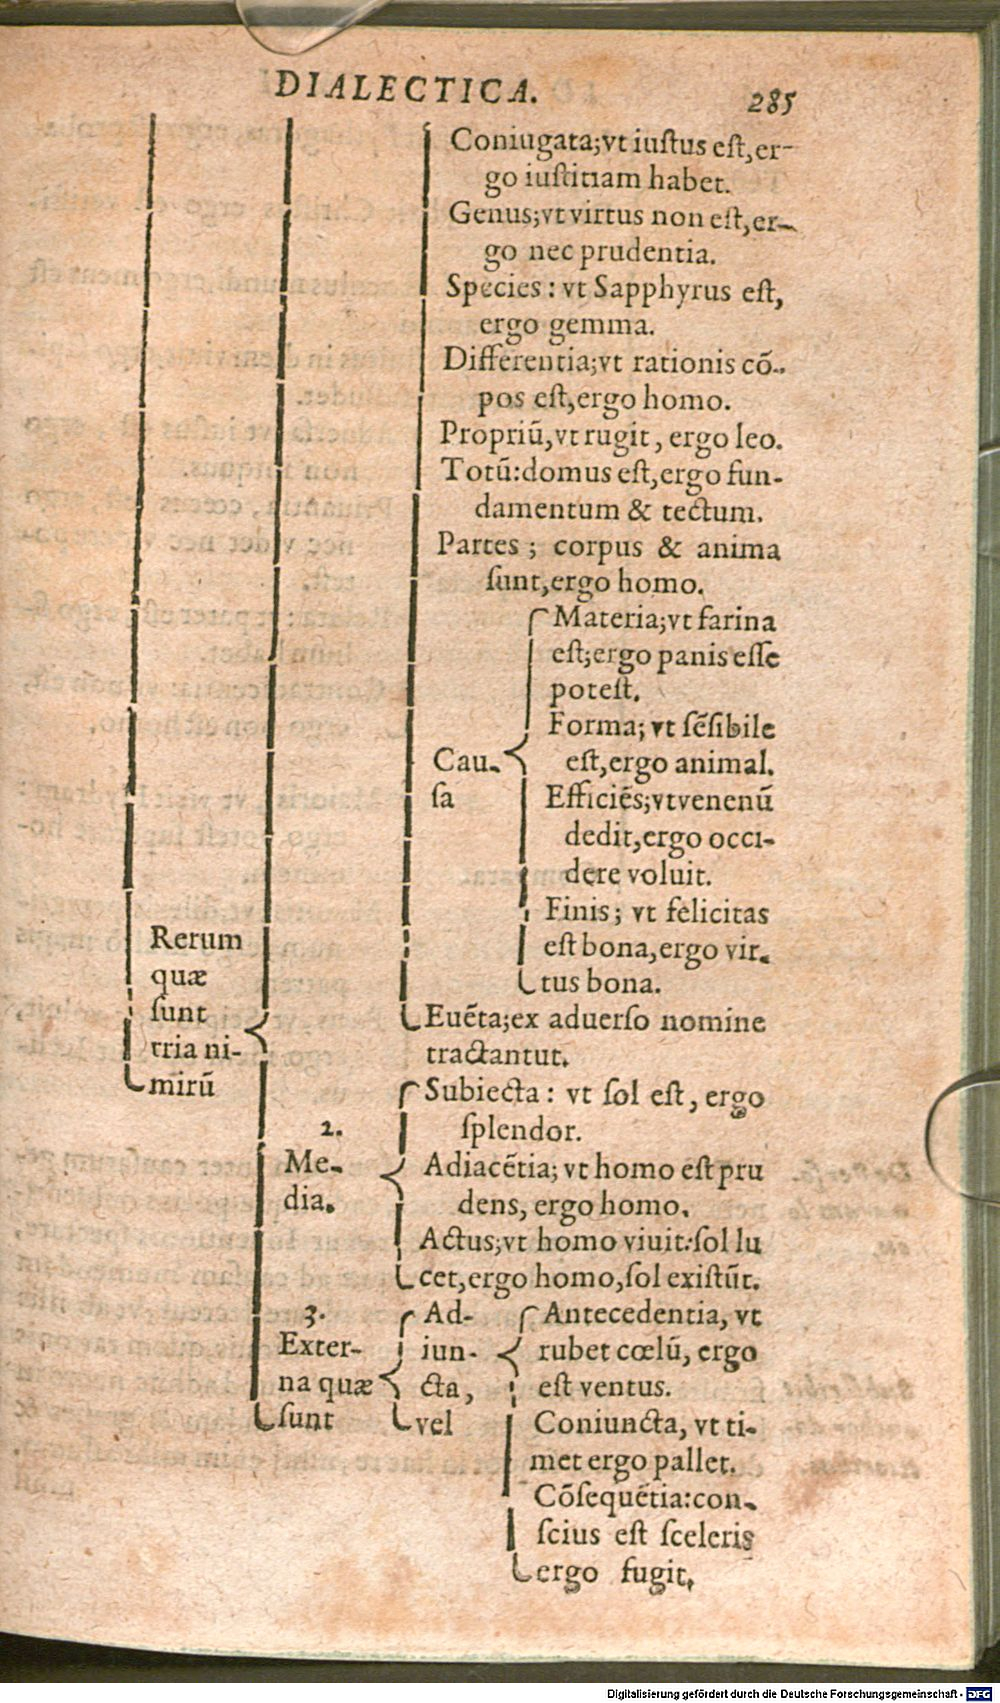 DIALECTICA.
285
Coniugata;vt iuſtus eſt,er-
go iuſtitiam habet.
Genus;vt virtus non eſt,er-
go nec prudentia.
Species: vt Sapphyrus eſt,
ergo gemma.
Differentia;vt rationis cõ-
pos eſt,ergo homo.
Propriũ,vt rugit, ergo leo.
Totũ:domus eſt,ergo fun-
damentum & tectum.
Partes; corpus & anima
ſunt,ergo homo.
Cau-
ſa
Materia;vt farina
eſt;ergo panis eſſe
poteſt.
Forma; vt ſẽſibile
eſt,ergo animal.
Efficiẽs;vt venenũ
dedit,ergo occi-
dere voluit.
Finis; vt felicitas
eſt bona,ergo vir-
tus bona.
Euẽta;ex aduerſo nomine
tractantut.
Rerum
quæ
ſunt
tria ni-
mirũ
2.
Me-
dia.
Subiecta: vt ſol eſt, ergo
ſplendor.
Adiacẽtia; vt homo eſt pru
dens, ergo homo.
Actus;vt homo viuit:ſol lu
cet,ergo homo,ſol exiſtũt.
3.
Exter-
na quæ
ſunt
Ad-
iun-
cta,
vel
Antecedentia, vt
rubet cœlũ, ergo
eſt ventus.
Coniuncta, vt ti-
met ergo pallet.
Cõſequẽtia:con-
ſcius eſt ſceleris
ergo fugit.
Digitalisierung gefördert durch die Deutsche Forschungsgemeinschaft - DFG